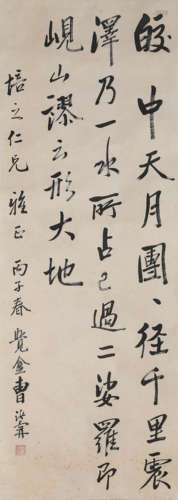 皎皎中天月團團徑千里震
澤乃一水所占已過二娑羅即
峴山謬云形大地
培之仁兄雅正 丙子春 覺盦曹汝霖